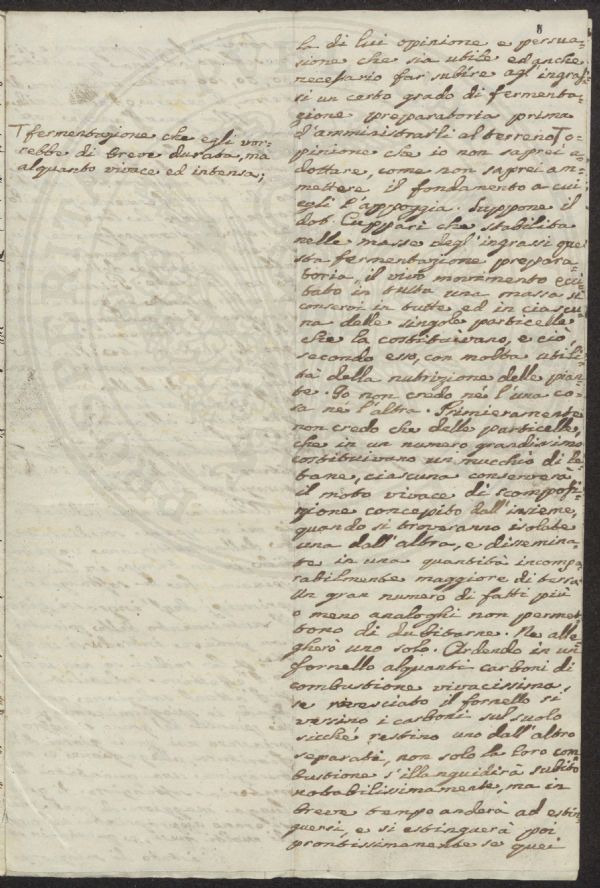 8
la di lui opinione e persua-
sione che sia utile ed anche
necessario far subire agl'ingras-
si un certo grado di fermenta-
zione preparatoria prima
d'amministrarli al terreno T o-
pinione che io non saprei a-
dottare, come non saprei am-
mettere il fondamento a cui
egli l'appoggia. Suppone il
dot. Cuppari che stabilita
nelle masse degl'ingrassi que-
sta fermentazione prepara-
toria, il vivo movimento ecci-
tato in tutta una massa si
conservi in tutte ed in ciascu-
na delle singole particelle
che la costituivano, e ciò,
secondo esso, con molta utili-
tà della nutrizione delle pian-
te. Io non credo nè l'una co-
sa nè l'altra. Primieramente
non credo che delle particelle,
che in un numero grandissimo
costituivano un mucchio di le-
tame, ciascuna conserverà
il moto vivace di scomposi-
zione concepito dall'insieme,
quando si troveranno isolate
una dall'altra, e dissemina-
te in una quantità incompa-
rabilmente maggiore di terra.
Un gran numero di fatti più
o meno analoghi non permet-
tono di dubitarne. Ne alle-
gherò uno solo. Ardendo in un
fornello alquanti carboni di
combustione vivacissima,
se rovesciato il fornello si
versino i carboni sul suolo
sicché restino uno dall'altro
separati, non solo la loro com-
bustione s'illanguidirà subito
notabilissimamente, ma in
breve tempo anderà ad estin-
guersi, e si estinguerà poi
prontissimamente se quei
T fermentazione che egli vor-
rebbe di breve durata, ma
alquanto vivace ed intensa;